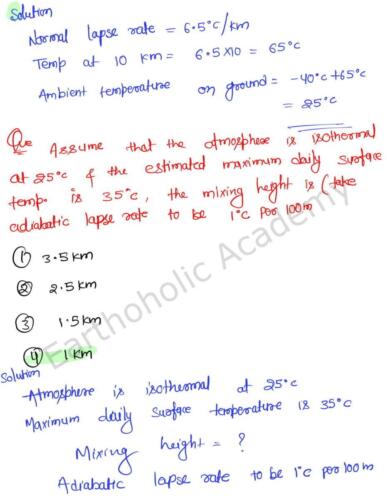 Solution
Normal lapse rate = 6.5°c/km
Temp at 10 km = 6.5x10 = 65°c
Ambient temperature on ground = -40°c+65°c
= 25°c
Que Assume that the atmosphere is isothermal
at 25°c & the estimated maximum daily surface
temp. is 35°c, the mixing height is (take
adiabatic lapse rate to be 1°c per 100m
① 3.5 km
② 2.5 km
③ 1.5 km
④ 1 km
Solution
Atmosphere is isothermal at 25°c
Maximum daily surface temperature is 35°c
Mixing height = ?
Adiabatic lapse rate to be 1°c per 100m
Earthoholic Academy